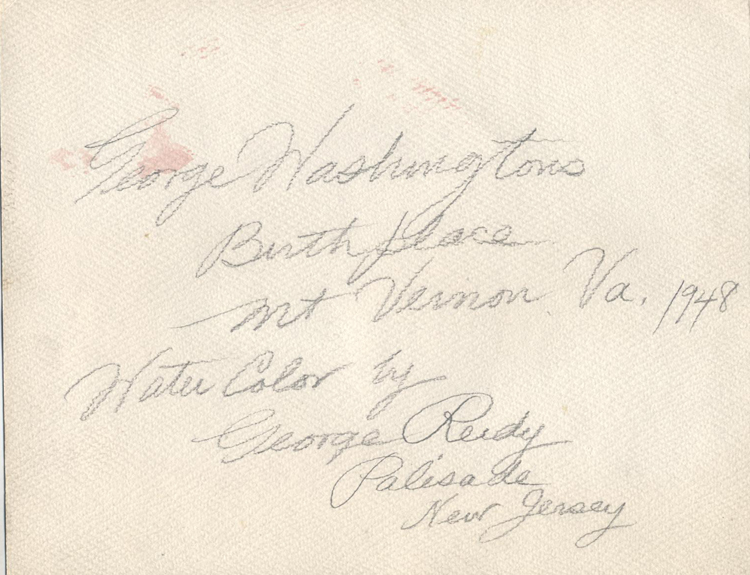 George Washingtons
Birth place
Mt Vernon Va. 1948
Water Color by
George Reidy
Palisade
New Jersey